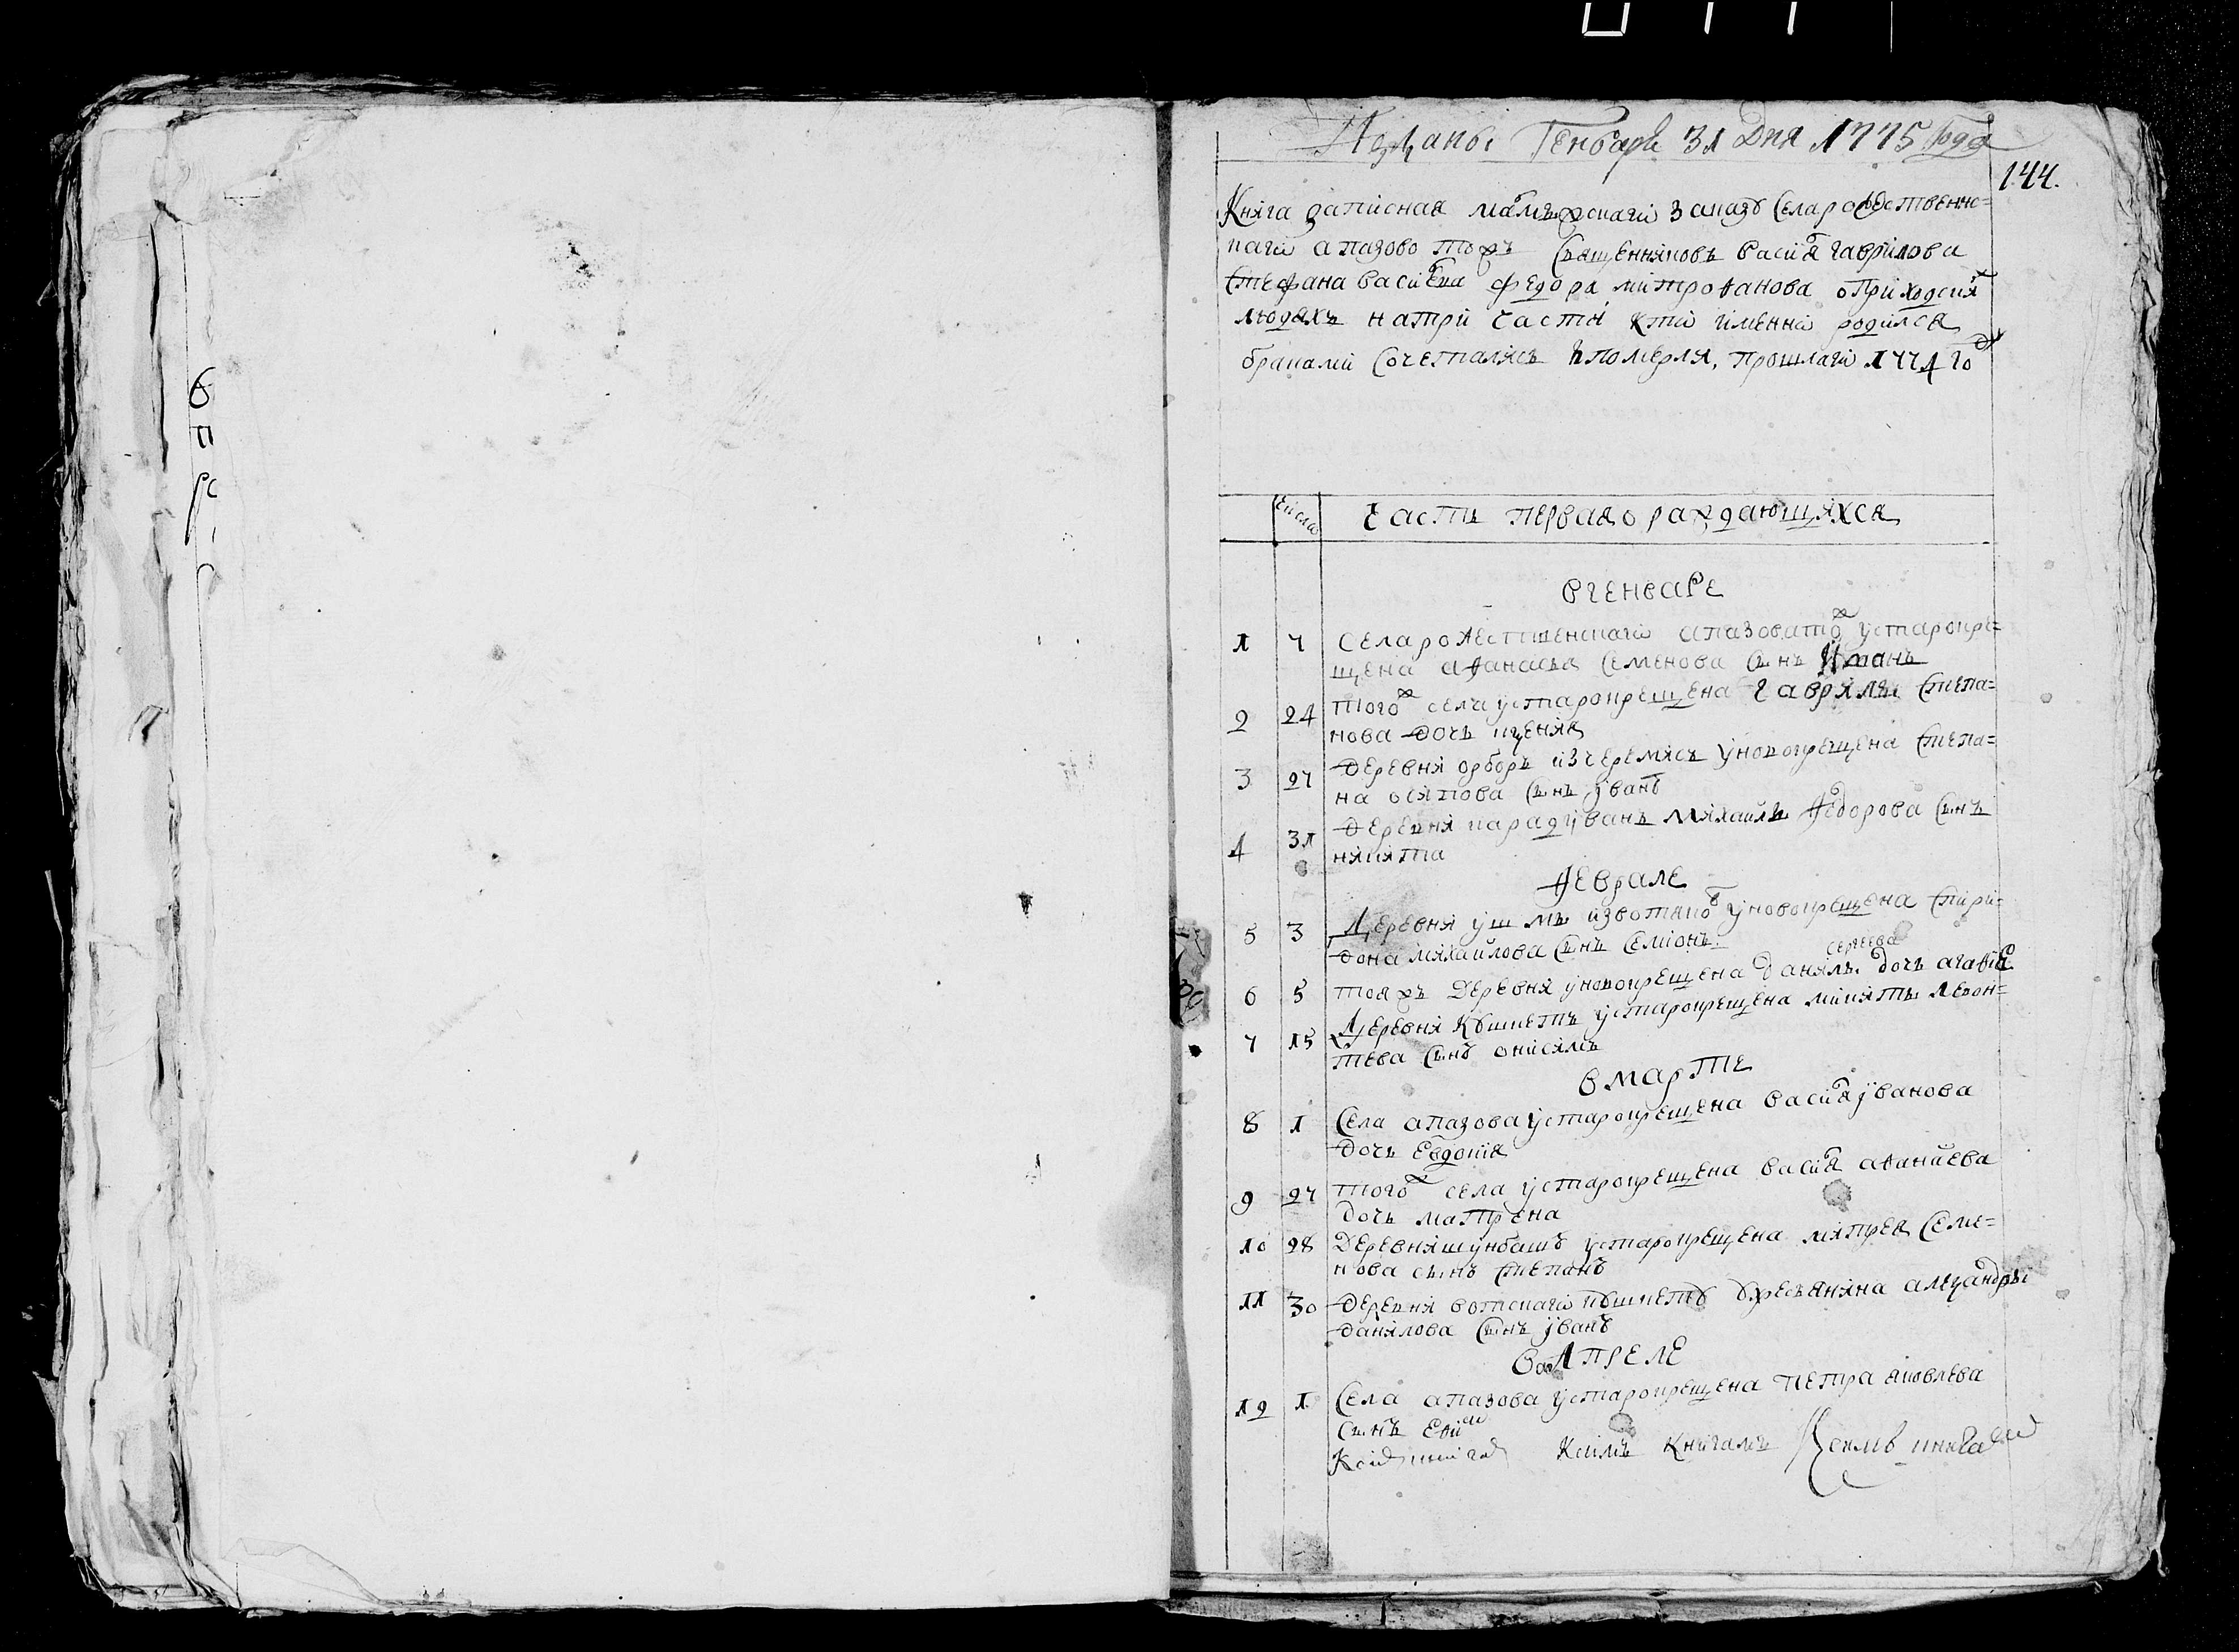 Поданы Генваря 31 Дня 1775 Года
144.
Книга записная мамыжскаго заказу села рождественс=
каго апазово тожъ священниковъ васил гаврилова
стефана василева федора митрофанова о приходски
людяхъ на три части кто именно родился
браками сочеталися и померли, прошлаго 1774 го
числа части первая о раждающихся
в генваре
1 7 села рожественскаго апазова то у старокре=
щена афанасья семенова сынъ
2 24 того села у старокрещена гаврилы степа=
нова дочь
3 27 деревни орборъ из черемисъ у новокрещена степа=
на осипова сынъ иванъ
4 31 деревни карадуванъ михаилы федорова сынъ
никита
феврале
5 3 Деревни ушмы из вотяко у новокрещена спири=
дона михайлова сынъ семионъ
сергеева
6 5 тояжъ деревни у новокрещена данилы дочь агафия
7 15 Деревни кушкетъ у старокрещена микиты левон=
тева сынъ онисимъ
в марте
8 1 Села апазова у старокрещена васил иванова
дочь евдокия
9 27 того села у старокрещена васил
дочь матрена
10 28 деревни шунбашъ у старокрещена митрея семе=
нова сынъ степанъ
11 30 деревни вотскаго кушкетъ
данилова сынъ иванъ
в апреле
12 1 Села апазова у старокрещена петра яковлева
сынъ
Книгамъ